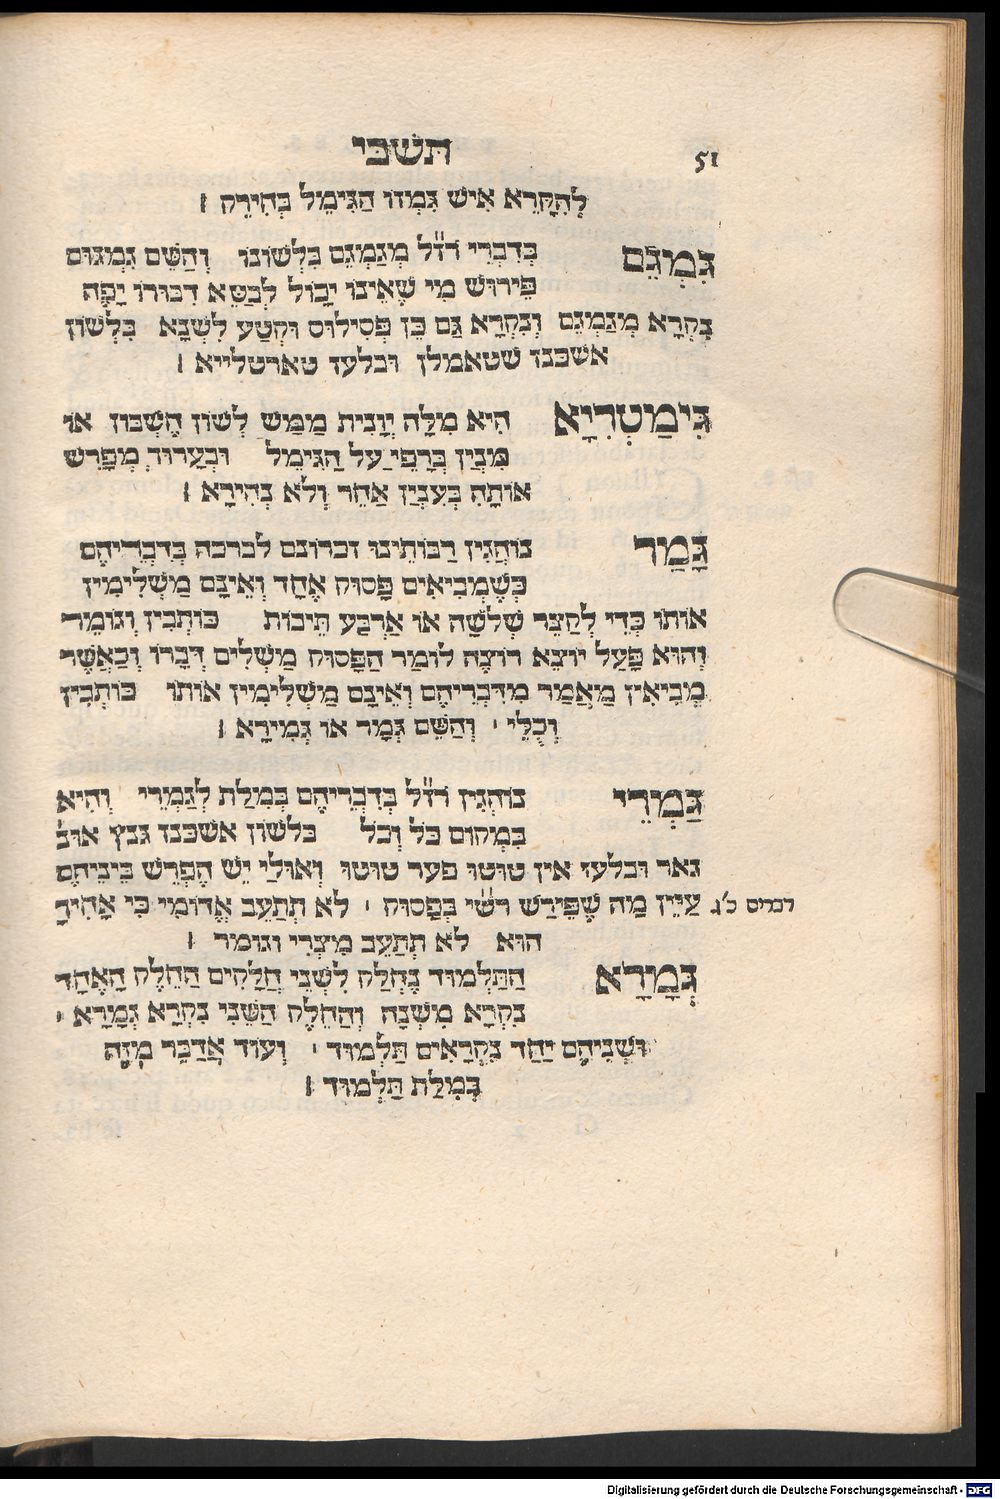 תשבי
51
לְהִקָּרֵא אִישׁ גִּמְזוֹ הַגִּימֶל בְּחִירֶק ׃
גִּמְגֵּם
בְּדִבְרֵי רז״ל מְגַמְגֵּם בִּלְשׁוֹנוֹ וְהַשֵּׁם גִּמְגּוּם
פֵּירוּשׁ מִי שֶׁאֵינוֹ יָכוֹל לְבַטֵּא דִבּוּרוֹ יָפֶה
נִקְרָא מְגַמְגֵּם וְנִקְרָא גַּם כֵּן פְּסִילוּס וּקְטַע לִשָּׁנָא בִּלְשׁוֹן
אשכנז שטאמלן ובלעז טארטלייא ׃
גִּימַטְרִיָּא
הִיא מִלָּה יְוָנִית מַמַּשׁ לְשׁוֹן חֶשְׁבּוֹן אוֹ
מִנְיָן בְּרָפֵי עַל הַגִּימֶל וּבְעָרוּךְ מְפָרֵשׁ
אוֹתָהּ בְּעִנְיָן אַחֵר וְלֹא נְהִירָא ׃
גָּמַר
נוֹהֲגִין רַבּוֹתֵינוּ זכרונם לברכה בְּדִבְרֵיהֶם
כְּשֶׁמְּבִיאִים פָּסוּק אֶחָד וְאֵינָם מַשְׁלִימִין
אוֹתוֹ כְּדֵי לְקַצֵּר שְׁלשָׁה אוֹ אַרְבַּע תֵּיבוֹת כּוֹתְבִין וְגוֹמֵר
וְהוּא פָּעַל יוֹצֵא רוֹצֶה לוֹמַר הַפָּסוּק מַשְׁלִים דְּבָרוֹ וְכַאֲשֶׁר
מְבִיאִין מַאֲמַר מִדִּבְרֵיהֶם וְאֵינָם מַשְׁלִימִין אוֹתוֹ כּוֹתְבִין
וְכֻלֵּי ׳ וְהַשֵּׁם גְּמָר אוֹ גְּמִירָא ׃
גַּמְרֵי
נוֹהְגִין רז״ל בְּדִבְרֵיהֶם בְּמִלַּת לְגַמְרֵי וְהִיא
בִּמְקוֹם כֹּל וְכֹל בלשון אשכנז גנץ אונ׳
גאר ובלעז אין טוטו פער טוטו וְאוּלַי יֵשׁ הֶפְרֵשׁ בֵּינֵיהֶם
עַיֵּין מַה שֶּׁפֵּירַשׁ רש״י בְּפָסוּק ׳ לֹא תְתַעֵב אֲדוֹמִי כִּי אָחִיךָ
דברים כ׳ג
הוּא לֹא תְתַעֵב מִצְרִי וגומר ׃
גְּמָרָא
הַתַּלְמוּד נֶחְלַק לִשְׁנֵי חֲלָקִים הַחֵלֶק הָאֶחָד
נִקְרָא מִשְׁנָה וְהַחֵלֶק הַשֵּׁנִי נִקְרָא גְּמָרָא ׳
וּשְׁנֵיהֶם יַחַד נִקְרָאִים תַּלְמוּד ׳ וְעוֹד אֲדַבֵּר מִזֶּה
בְּמִלַּת תַּלְמוּד ׃
Digitalisierung gefördert durch die Deutsche Forschungsgemeinschaft - DFG